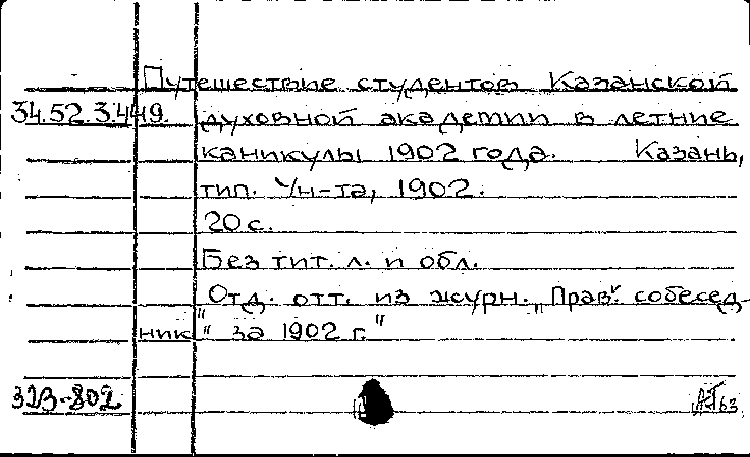 Путешествие студентов Казанской
34.52.3.449. духовной академии в летние
каникулы 1902 года. Казань,
тип. Ун-та, 1902.
20 с.
Без тит. л. и обл.
"Отд. отт. из журн. „Прав. собесед-
ник" за 1902 г."
323-802